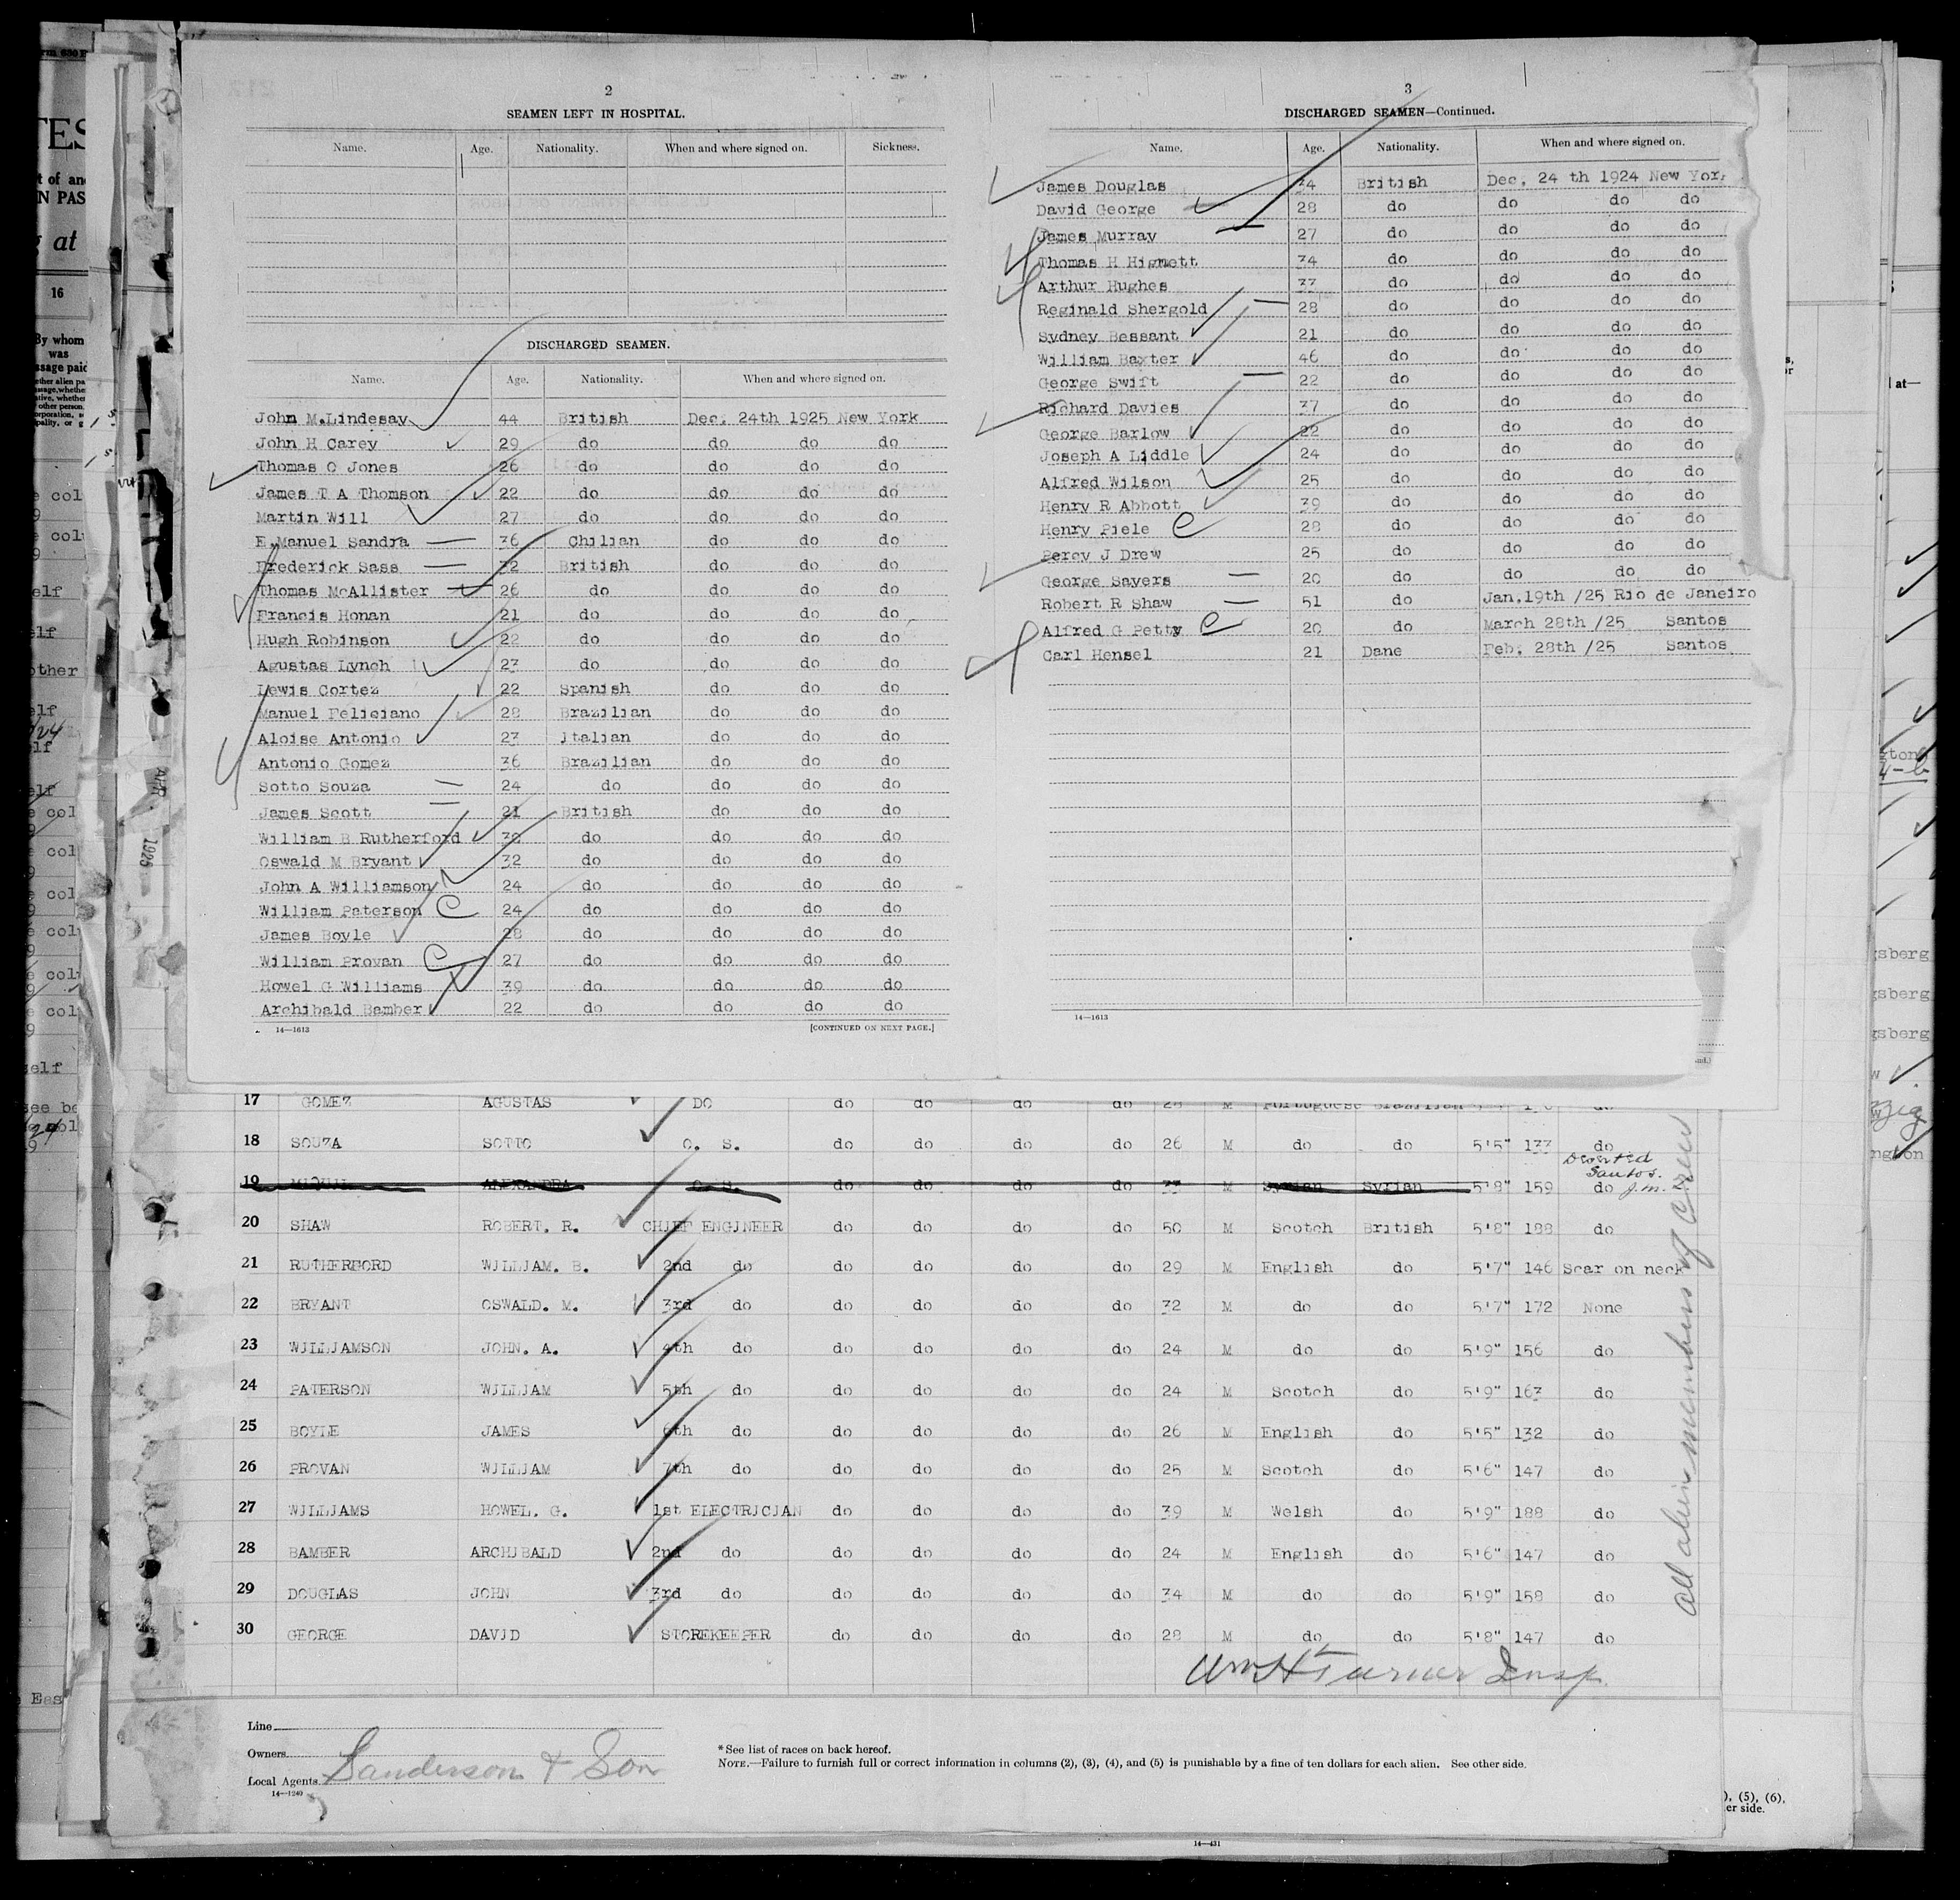 2
SEAMEN LEFT IN HOSPITAL.
Name. Age. Nationality. When and where signed on. Sickness.
DISCHARGED SEAMEN.
Name. Age. Nationality. When and where signed on.
John M.Lindesay 44 British Dec. 24th 1925 New York
John H Carey 29 do do do do
Thomas O Jones 26 do do do do
James T A Thomson 22 do do do do
Martin Will 27 do do do do
E.Manuel Sandra 36 Chilian do do do
Frederick Sass 32 British do do do
Thomas McAllister 26 do do do do
Francis Honan 21 do do do do
Hugh Robinson 22 do do do do
Agustas Lynch 27 do do do do
Lewis Cortez 22 Spanish do do do
Manuel Feliciano 28 Brazilian do do do
Aloise Antonio 27 Jtalian do do do
Antonio Gomez 36 Brazilian do do do
Sotto Souza 24 do do do do
James Scott 21 British do do do
William B Rutherford 30 do do do do
Oswald M Bryant 32 do do do do
John A Williamson 24 do do do do
William Paterson C 24 do do do do
James Boyle 28 do do do do
William Provan C 27 do do do do
Howel G Williams 39 do do do do
Archibald Bamber 22 do do do do
14—1613 [CONTINUED ON NEXT PAGE.]
3
DISCHARGED SEAMEN—Continued.
Name. Age. Nationality. When and where signed on.
James Douglas 34 British Dec. 24 th 1924 New York
David George 28 do do do do
James Murray 27 do do do do
Thomas H Hignett 34 do do do do
Arthur Hughes 37 do do do do
Reginald Shergold 28 do do do do
Sydney Bessant 21 do do do do
William Baxter 46 do do do do
George Swift 22 do do do do
Richard Davies 37 do do do do
George Barlow 22 do do do do
Joseph A Liddle 24 do do do do
Alfred Wilson 25 do do do do
Henry R Abbott 39 do do do do
Henry Piele C 28 do do do do
Percy J Drew 25 do do do do
George Sayers 20 do do do do
Robert R Shaw 51 do Jan.19th /25 Rio de Janeiro
Alfred G Petty C 20 do March 28th /25 Santos
Carl Hensel 21 Dane Feb. 28th /25 Santos
14—1613
17 GOMEZ AGUSTAS DO do do do do M Portuguese Brazilian
18 SOUZA SOTTO O. S. do do do do 26 M do do 5'5" 133 do
Deserted
Santos.
19 O. S. do do do do 33 M Syrian Syrian 5'8" 159 do J.M.
20 SHAW ROBERT. R. CHIEF ENGJNEER do do do do 50 M Scotch British 5'8" 188 do
21 RUTHERFORD WJLLJAM. B. 2nd do do do do do 29 M English do 5'7" 146 Scar on neck
22 BRYANT OSWALD. M. 3rd do do do do do 32 M do do 5'7" 172 None
23 WJLLJAMSON JOHN. A. 4th do do do do do 24 M do do 5'9" 156 do
24 PATERSON WJLLJAM 5th do do do do do 24 M Scotch do 5'9" 163 do
25 BOYLE JAMES 6th do do do do do 26 M English do 5'5" 132 do
26 PROVAN WJLLJAM 7th do do do do do 25 M Scotch do 5'6" 147 do
27 WJLLJAMS HOWEL. G. 1st ELECTRJCJAN do do do do 39 M Welsh do 5'9" 188 do
28 BAMBER ARCHJBALD 2nd do do do do do 24 M English do 5'6" 147 do
29 DOUGLAS JOHN 3rd do do do do do 34 M do do 5'9" 158 do
30 GEORGE DAVJD STOREKEEPER do do do do 28 M do do 5'8" 147 do
All alien members of crew
Wm H Turner Insp.
Line
Owners
Local Agents. Sanderson & Son
14—1240
* See list of races on back hereof.
NOTE.—Failure to furnish full or correct information in columns (2), (3), (4), and (5) is punishable by a fine of ten dollars for each alien. See other side.
14—431
TES
t of an
N PAS
g at
16
By whom
was
ssage paid
1925
), (5), (6),
er side.